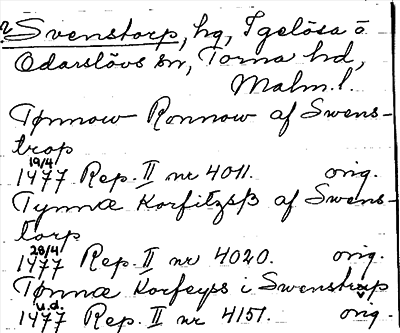 Svenstorp, hg, Igelösa o
Odarslövs sn, Torna hd,
Malm.l.
Tønnow Ronnow af Swens-
trop
19/4
1477 Rep. II nr 4011. orig.
Tynnæ Korfitzsß af Swens-
torp
28/4
1477 Rep. II nr 4020. orig.
Tønnæ Korfeyss i Swenstrup
u.d.
1477 Rep. II nr 4151. orig.